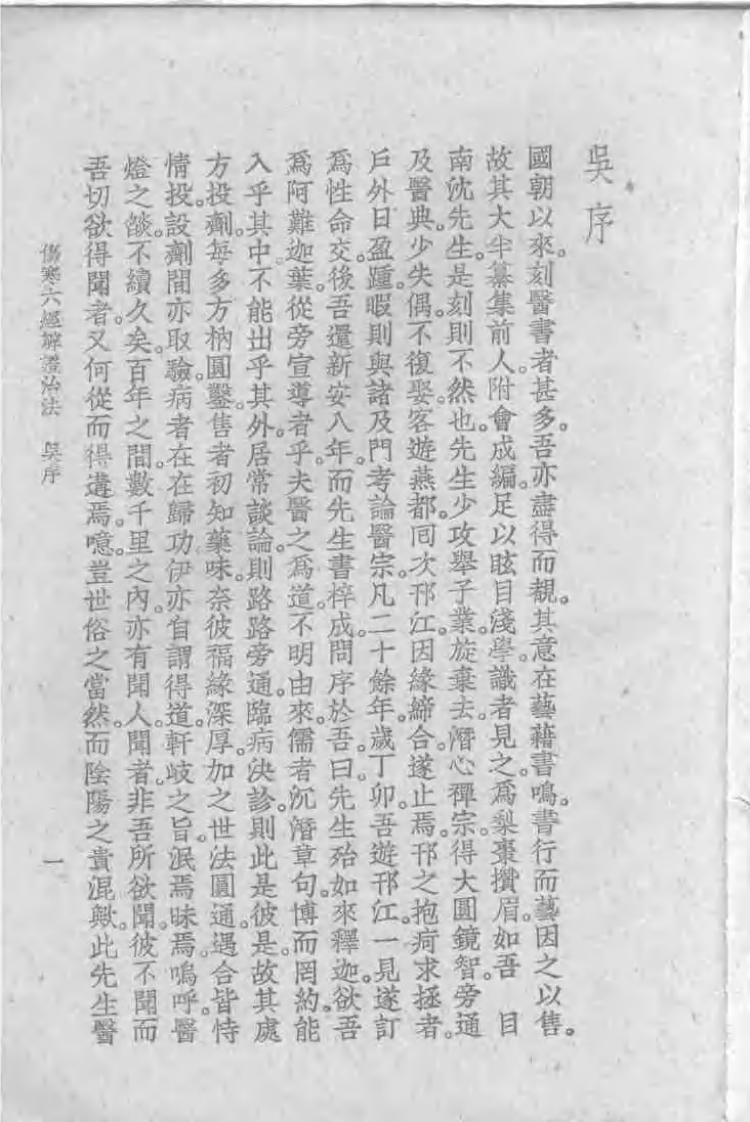 吳序
國朝以來。刻醫書者甚多。吾亦盡得而覩。其意在藝藉書鳴。書行而藝因之以售。
故其大半纂集前人。附會成編。足以眩目淺學。識者見之。爲梨棗攢眉。如吾 目
南沈先生。是刻則不然也。先生少攻舉子業。旋棄去。潛心禪宗。得大圓鏡智。旁通
及醫典。少失偶。不復娶。客遊燕都。同次邗江。因緣締合。遂止焉。邗之抱疴求拯者。
戶外日盈踵。暇則與諸及門考論醫宗。凡二十餘年。歲丁卯。吾遊邗江。一見遂訂
爲性命交。後吾還新安八年。而先生書梓成。問序於吾。曰。先生殆如來釋迦。欲吾
爲阿難迦葉。從旁宣導者乎。夫醫之爲道。不明由來。儒者沉潛章句。博而罔約。能
入乎其中。不能出乎其外。居常談論。則路路旁通。臨病決診。則此是彼是。故其處
方投劑。每多方枘圓鑿。售者初知藥味。奈彼福緣深厚。加之世法圓通。遇合皆恃
情投。設劑間亦取驗。病者在在歸功。伊亦自謂得道。軒岐之旨。泯焉昧焉。嗚呼。醫
燈之燄。不續久矣。百年之間。數千里之內。亦有聞人。聞者非吾所欲聞。彼不聞而
吾切欲得聞者。又何從而得遘焉。噫。豈世俗之當然。而陰陽之貴混歟。此先生醫
傷寒六經辨證治法 吳序
一